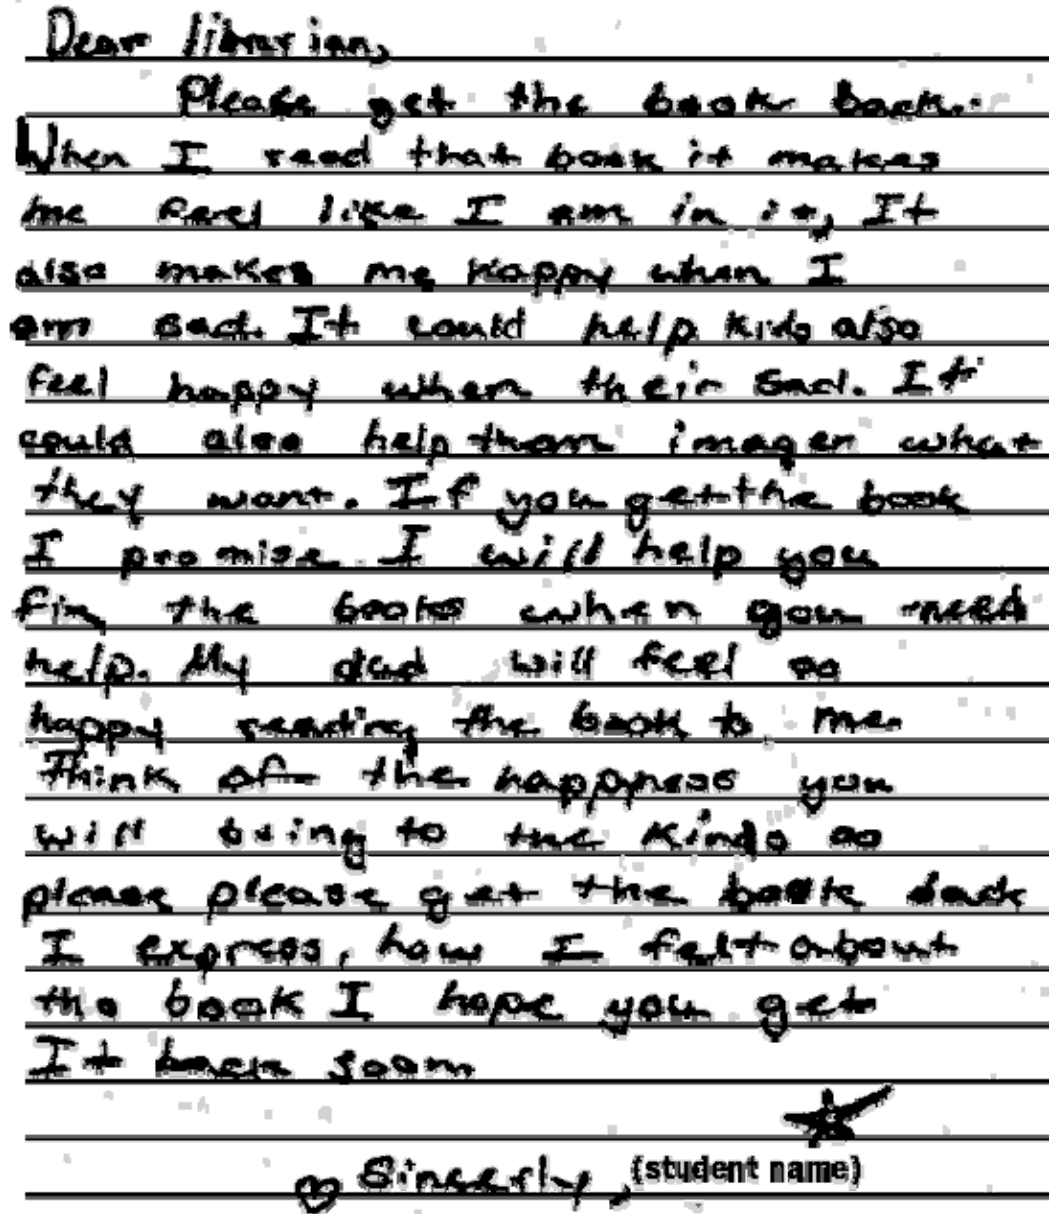 Dear librarian,
Please get the book back.
When I read that book it makes
me feel like I am in it, It
also makes me happy when I
am sad. It could help kids also
feel happy when their sad. It
could also help them imagen what
they want. If you get the book
I promise I will help you
fix the books when you need
help. My dad will feel so
happy reading the book to me.
Think of the happyness you
will bring to the Kinds so
please please get the book back
I express, how I felt about
the book I hope you get
It back soon
Sincerly, (student name)